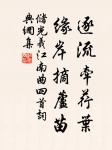 逐流牽荇葉
緣岸摘蘆苗
儲光羲江南曲四首詞
典網集